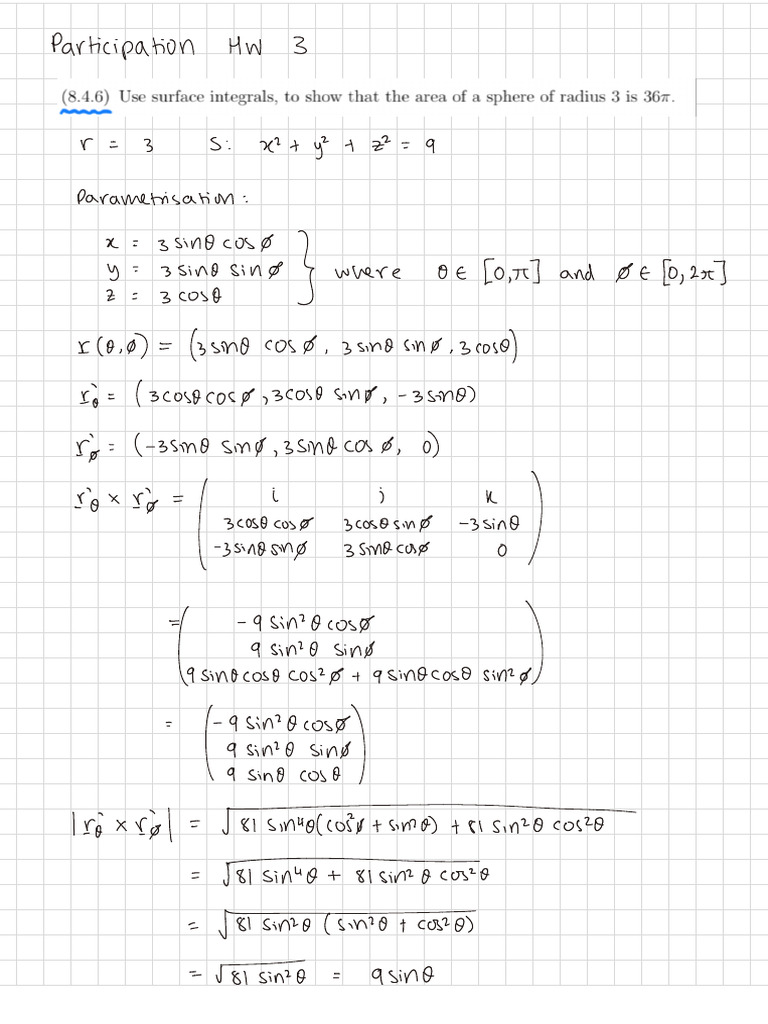 Participation HW 3
(8.4.6) Use surface integrals, to show that the area of a sphere of radius 3 is 36π.
r = 3 S: x² + y² + z² = 9
Parametrisation:
x = 3 sinθ cos ø
y = 3 sinθ sin ø } where θ ∈ [0,π] and ø ∈ [0, 2π]
z = 3 cosθ
r (θ,ø) = (3 sinθ cos ø, 3 sinθ sin ø, 3 cosθ)
r'θ = (3cosθ cos ø, 3cosθ sin ø, -3 sinθ)
r'ø = (-3 sinθ sin ø, 3 sinθ cos ø, 0)
r'θ × r'ø = ( i j k
3cosθ cos ø 3cosθ sin ø -3 sinθ
-3 sinθ sin ø 3 sinθ cos ø 0 )
= ( -9 sin²θ cos ø
9 sin²θ sin ø
9 sinθ cosθ cos² ø + 9 sinθ cosθ sin² ø )
= ( -9 sin²θ cos ø
9 sin²θ sin ø
9 sinθ cosθ )
|r'θ × r'ø| = √81 sin⁴θ(cos²ø + sin²θ) + 81 sin²θ cos²θ
= √81 sin⁴θ + 81 sin²θ cos²θ
= √81 sin²θ (sin²θ + cos²θ)
= √81 sin²θ = 9 sinθ